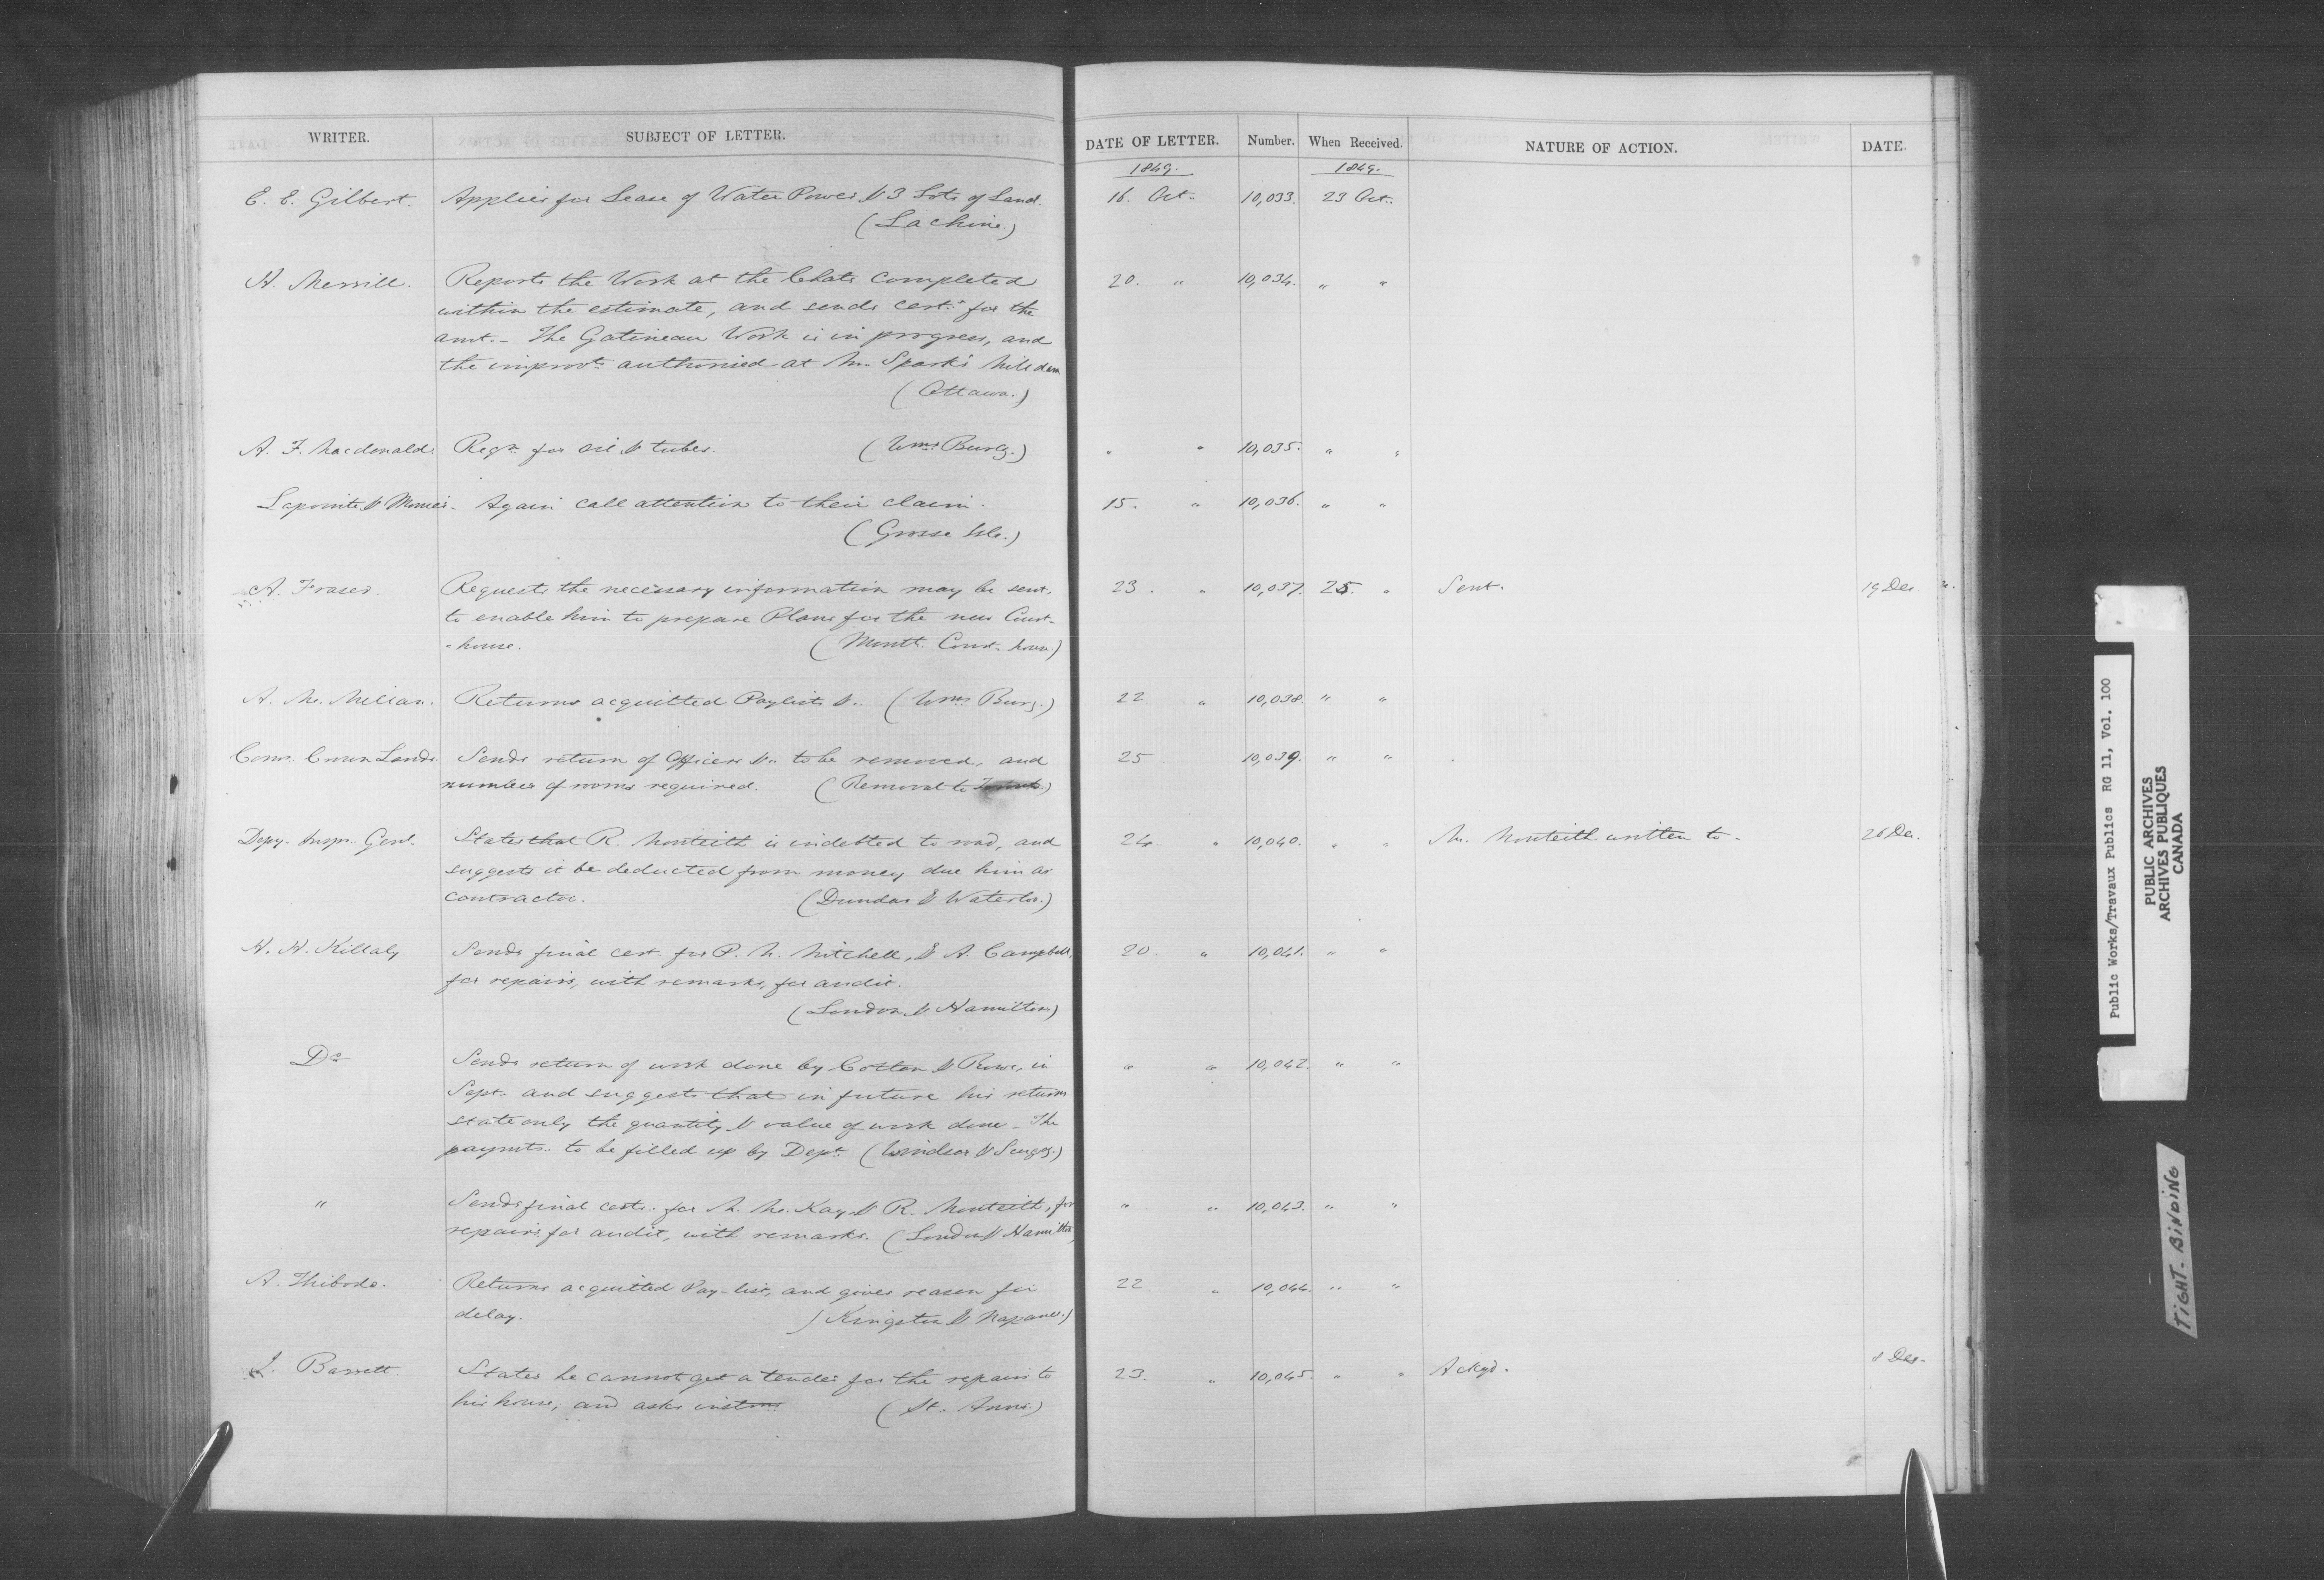 WRITER. SUBJECT OF LETTER. DATE OF LETTER. Number. When Received. NATURE OF ACTION. DATE.
1849. 1849.
E. E. Gilbert. Applies for Lease of Water Power & 3 Lots of Land. 16. Oct. 10,033. 23 Oct.
(Lachine.)
H. Merrill. Reports the Work at the Chats completed 20. " 10,034. " "
within the estimate, and sends cert. for the
amt. - The Gatineau Work is in progress, and
the improts. authorised at Mr. Spark's Mill dam
(Ottawa.)
A. F. Macdonald. Reqn. for oil & tubes. (Wms. Burg.) " " 10,035. " "
Lapointe & Again call attention to their claim. 15. " 10,036. " "
(Grosse Isle.)
A. Fraser. Requests the necessary information may be sent, 23. " 10,037. 25. " Sent. 19 Dec.
to enable him to prepare Plans for the new Court-
-house. (Montl. Court-house.)
A. Mc. Returns acquitted Paylists &c. (Wms. Burg.) 22 " 10,038. " "
Comr. Crown Lands. Sends return of Officers &c. to be removed, and 25 10,039. " "
number of rooms required. (Removal to Toronto.)
Depy. Inspr. Genl. States that R. Monteith is indebted to road, and 24 " 10,040. " " Mr. Monteith written to. 26 Dec.
suggests it be deducted from money due him as
contractor. (Dundas & Waterloo.)
H. H. Killaly Sends final cert. for P. M. Mitchell, & A. Campbell, 20. " 10,041. " "
for repairs, with remarks, for audit.
(London & Hamilton)
Do Sends return of work done by Cotton & Rowe, in " " 10,042. " "
Sept. and suggests that in future his returns
state only the quantity & value of work done - The
paymts. to be filled up by Dept. (Windsor & Scugog.)
" Sends final certs. for M. Mc. Kay & R. Monteith, for " " 10,043. " "
repairs, for audit, with remarks. (London & Hamilton)
A. Thibodo. Returns acquitted Pay-list, and gives reason for 22. " 10,044. " "
delay. (Kingston & Napanee.)
Barrett. States he cannot get a tender for the repairs to 23. " 10,045. " " Ackgd. 8 Dec.
his house, and asks instons (St. Anns.)
Public Works/Travaux Publics RG 11, Vol. 100
PUBLIC ARCHIVES
ARCHIVES PUBLIQUES
CANADA
TIGHT-BINDING